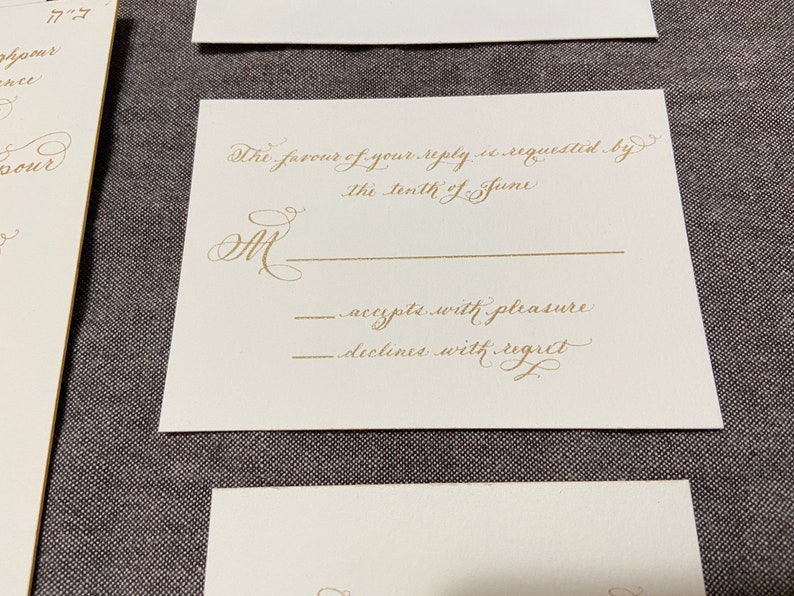 ב״ה
pour
ance
pour
The favour of your reply is requested by
the tenth of June
M
accepts with pleasure
declines with regret